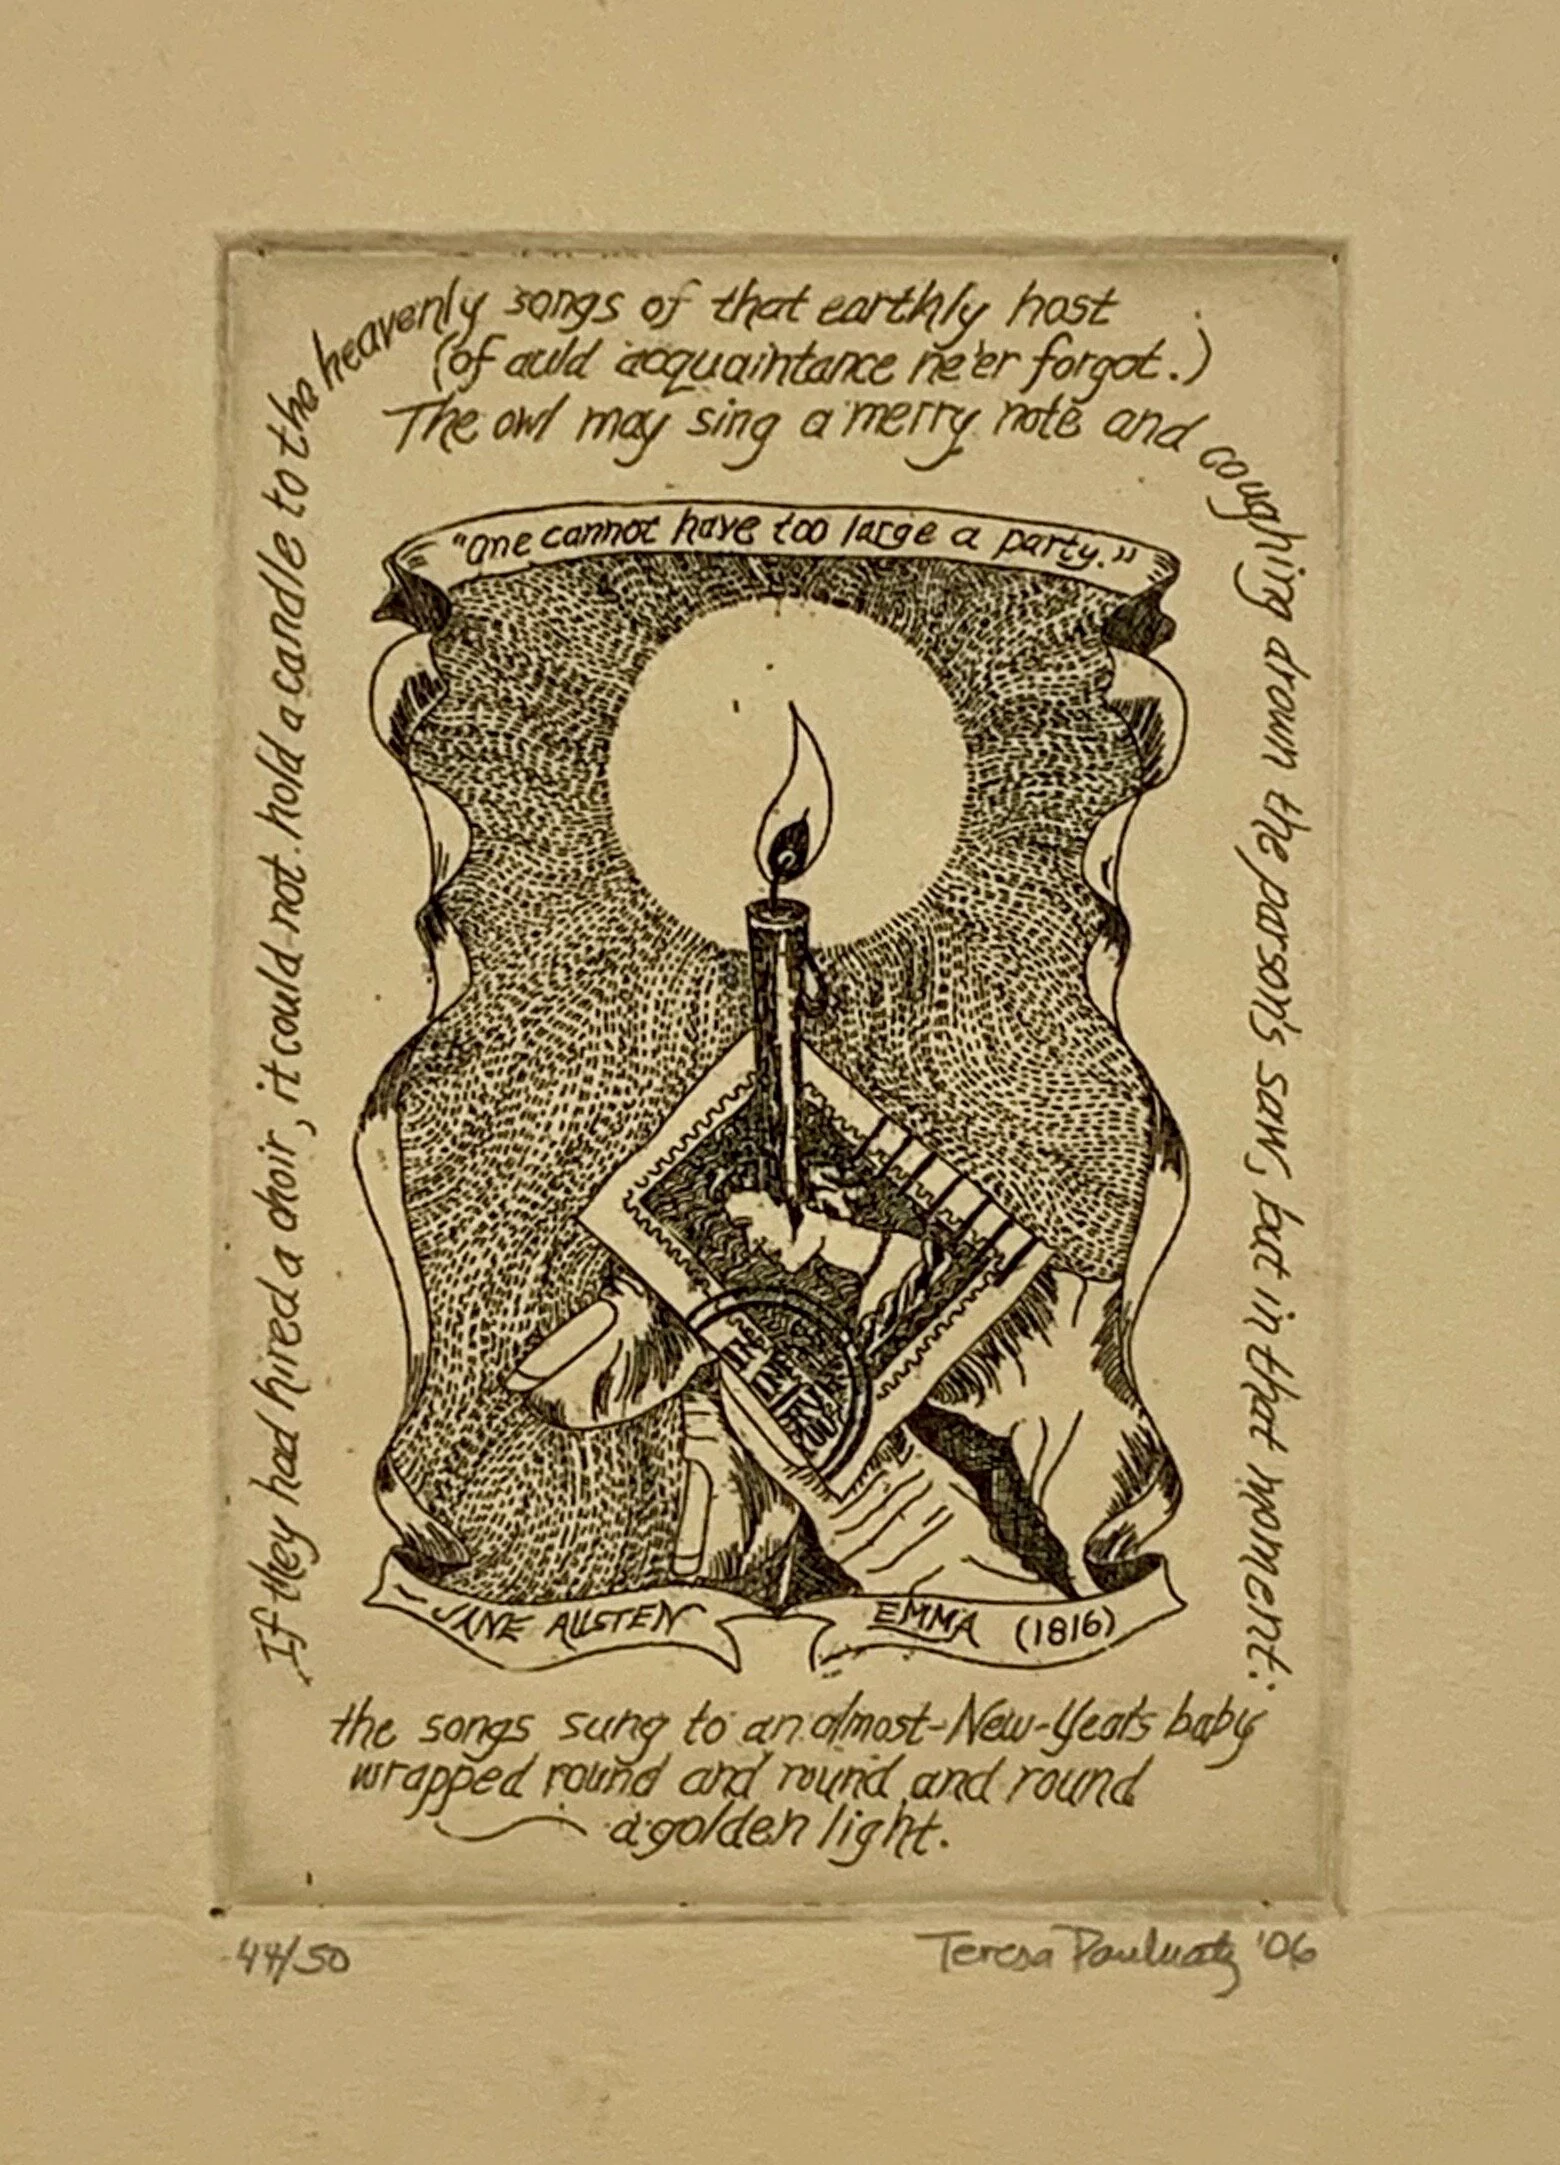 If they had hired a choir, it could not hold a candle to the heavenly songs of that earthly host
(of auld acquaintance ne'er forgot.)
The owl may sing a merry note and coughing drown the parson's saw, but in that moment:
"One cannot have too large a party."
JANE AUSTEN EMMA (1816)
the songs sung to an almost-New-Year's baby
wrapped round and round and round
a golden light.
44/50
Teresa '06